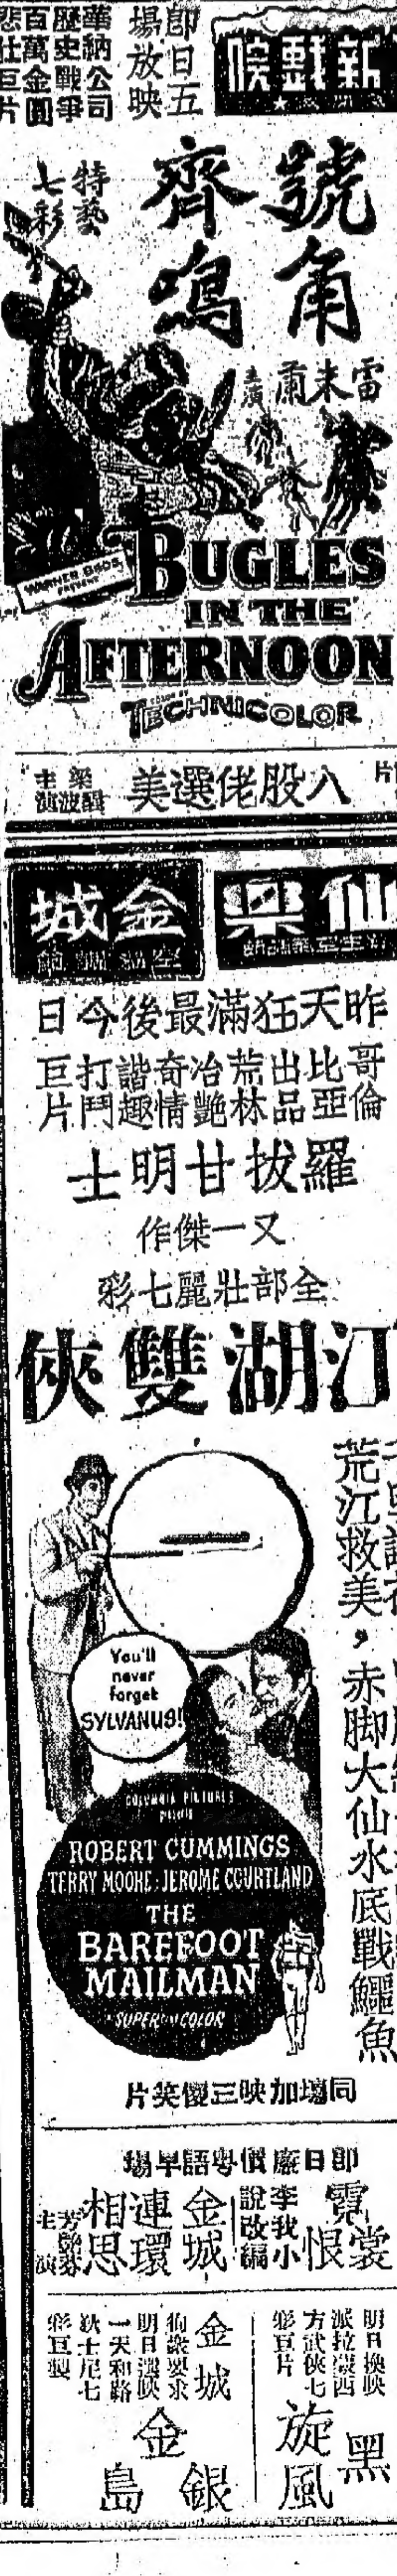 新戲院
即日五
場放映
華納公司
歷史戰爭
百萬金圓
悲壯巨片
號角
齊鳴
特藝
七彩
雷米蘭
主演
WARNER BROS.
PRESENT
BUGLES
IN THE
AFTERNOON
TECHNICOLOR
八股佬選美
梁醒波
主演
仙樂
金城
昨天狂滿最後今日
哥倫
比亞
出品
荒林
冶艷
奇情
諧趣
打鬥
巨片
羅拔甘明士
又一傑作
全部壯麗七彩
江湖雙俠
荒江救美，赤脚大仙水底戰鱷魚
You'll
never
forget
SYLVANUS!
COLUMBIA PICTURES
presents
ROBERT CUMMINGS
TERRY MOORE · JEROME COURTLAND
THE
BAREFOOT
MAILMAN
SUPERCINECOLOR
同場加映三傻笑片
即日廉價粵語早場
霓裳
恨
李我小
說改編
金城
連環
相思
芳艷芬
主演
明日換映
派拉蒙西
方武俠七
彩巨片
黑
旋風
金城
徇衆要求
明日選映
一天和路
狄士尼七
彩巨製
金
銀
島